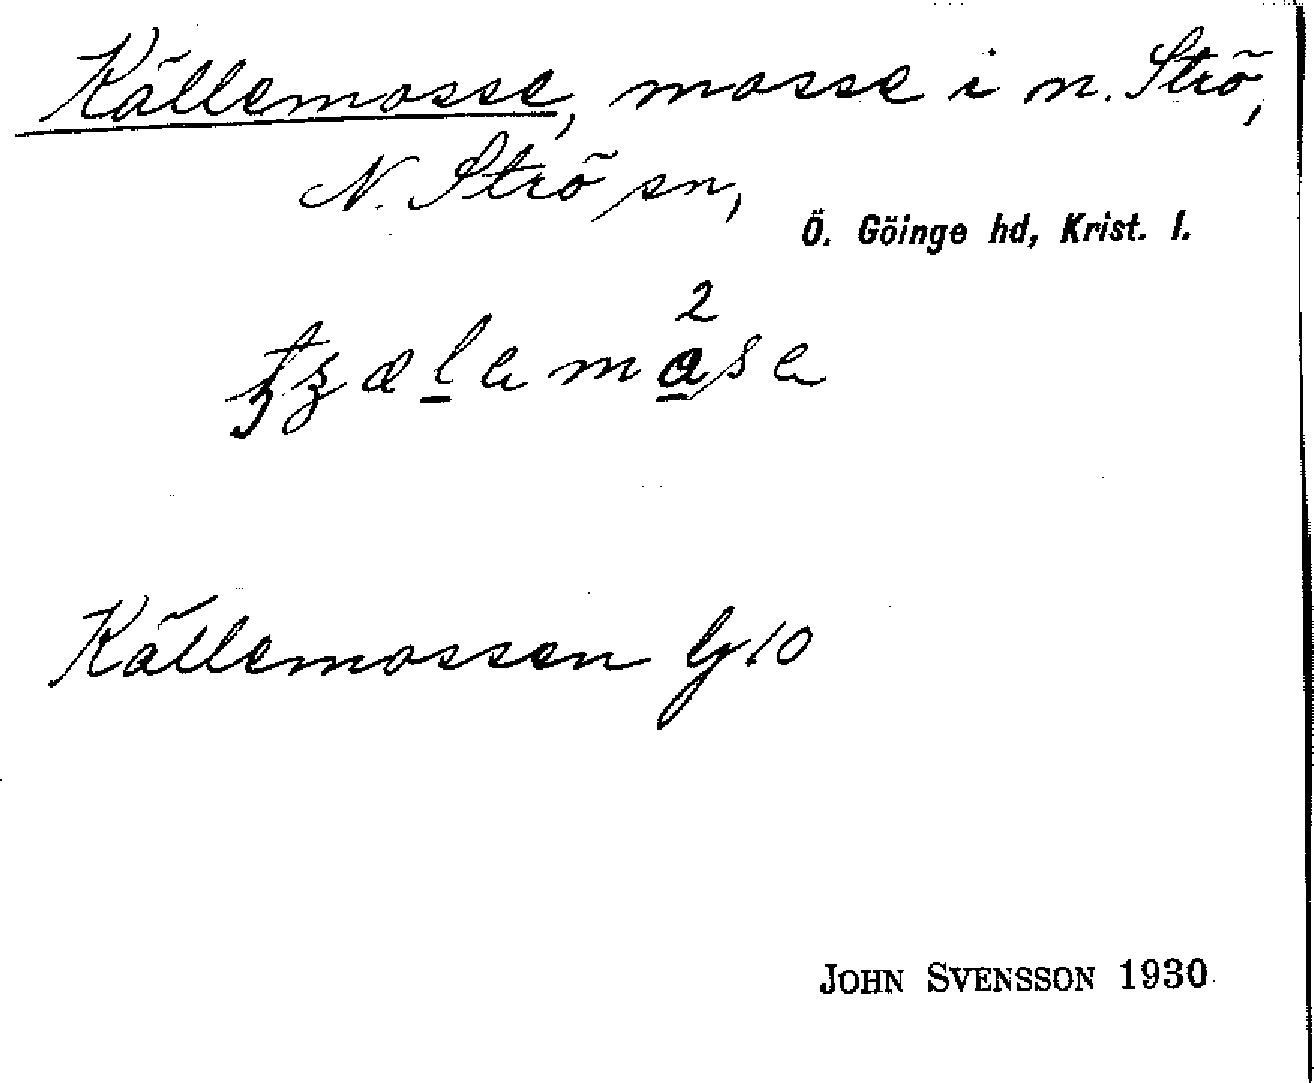 Källemosse, mosse i n. Strö,
N. Strö sn,
Ö. Göinge hd, Krist. l.
Källemossen G 10
JOHN SVENSSON 1930